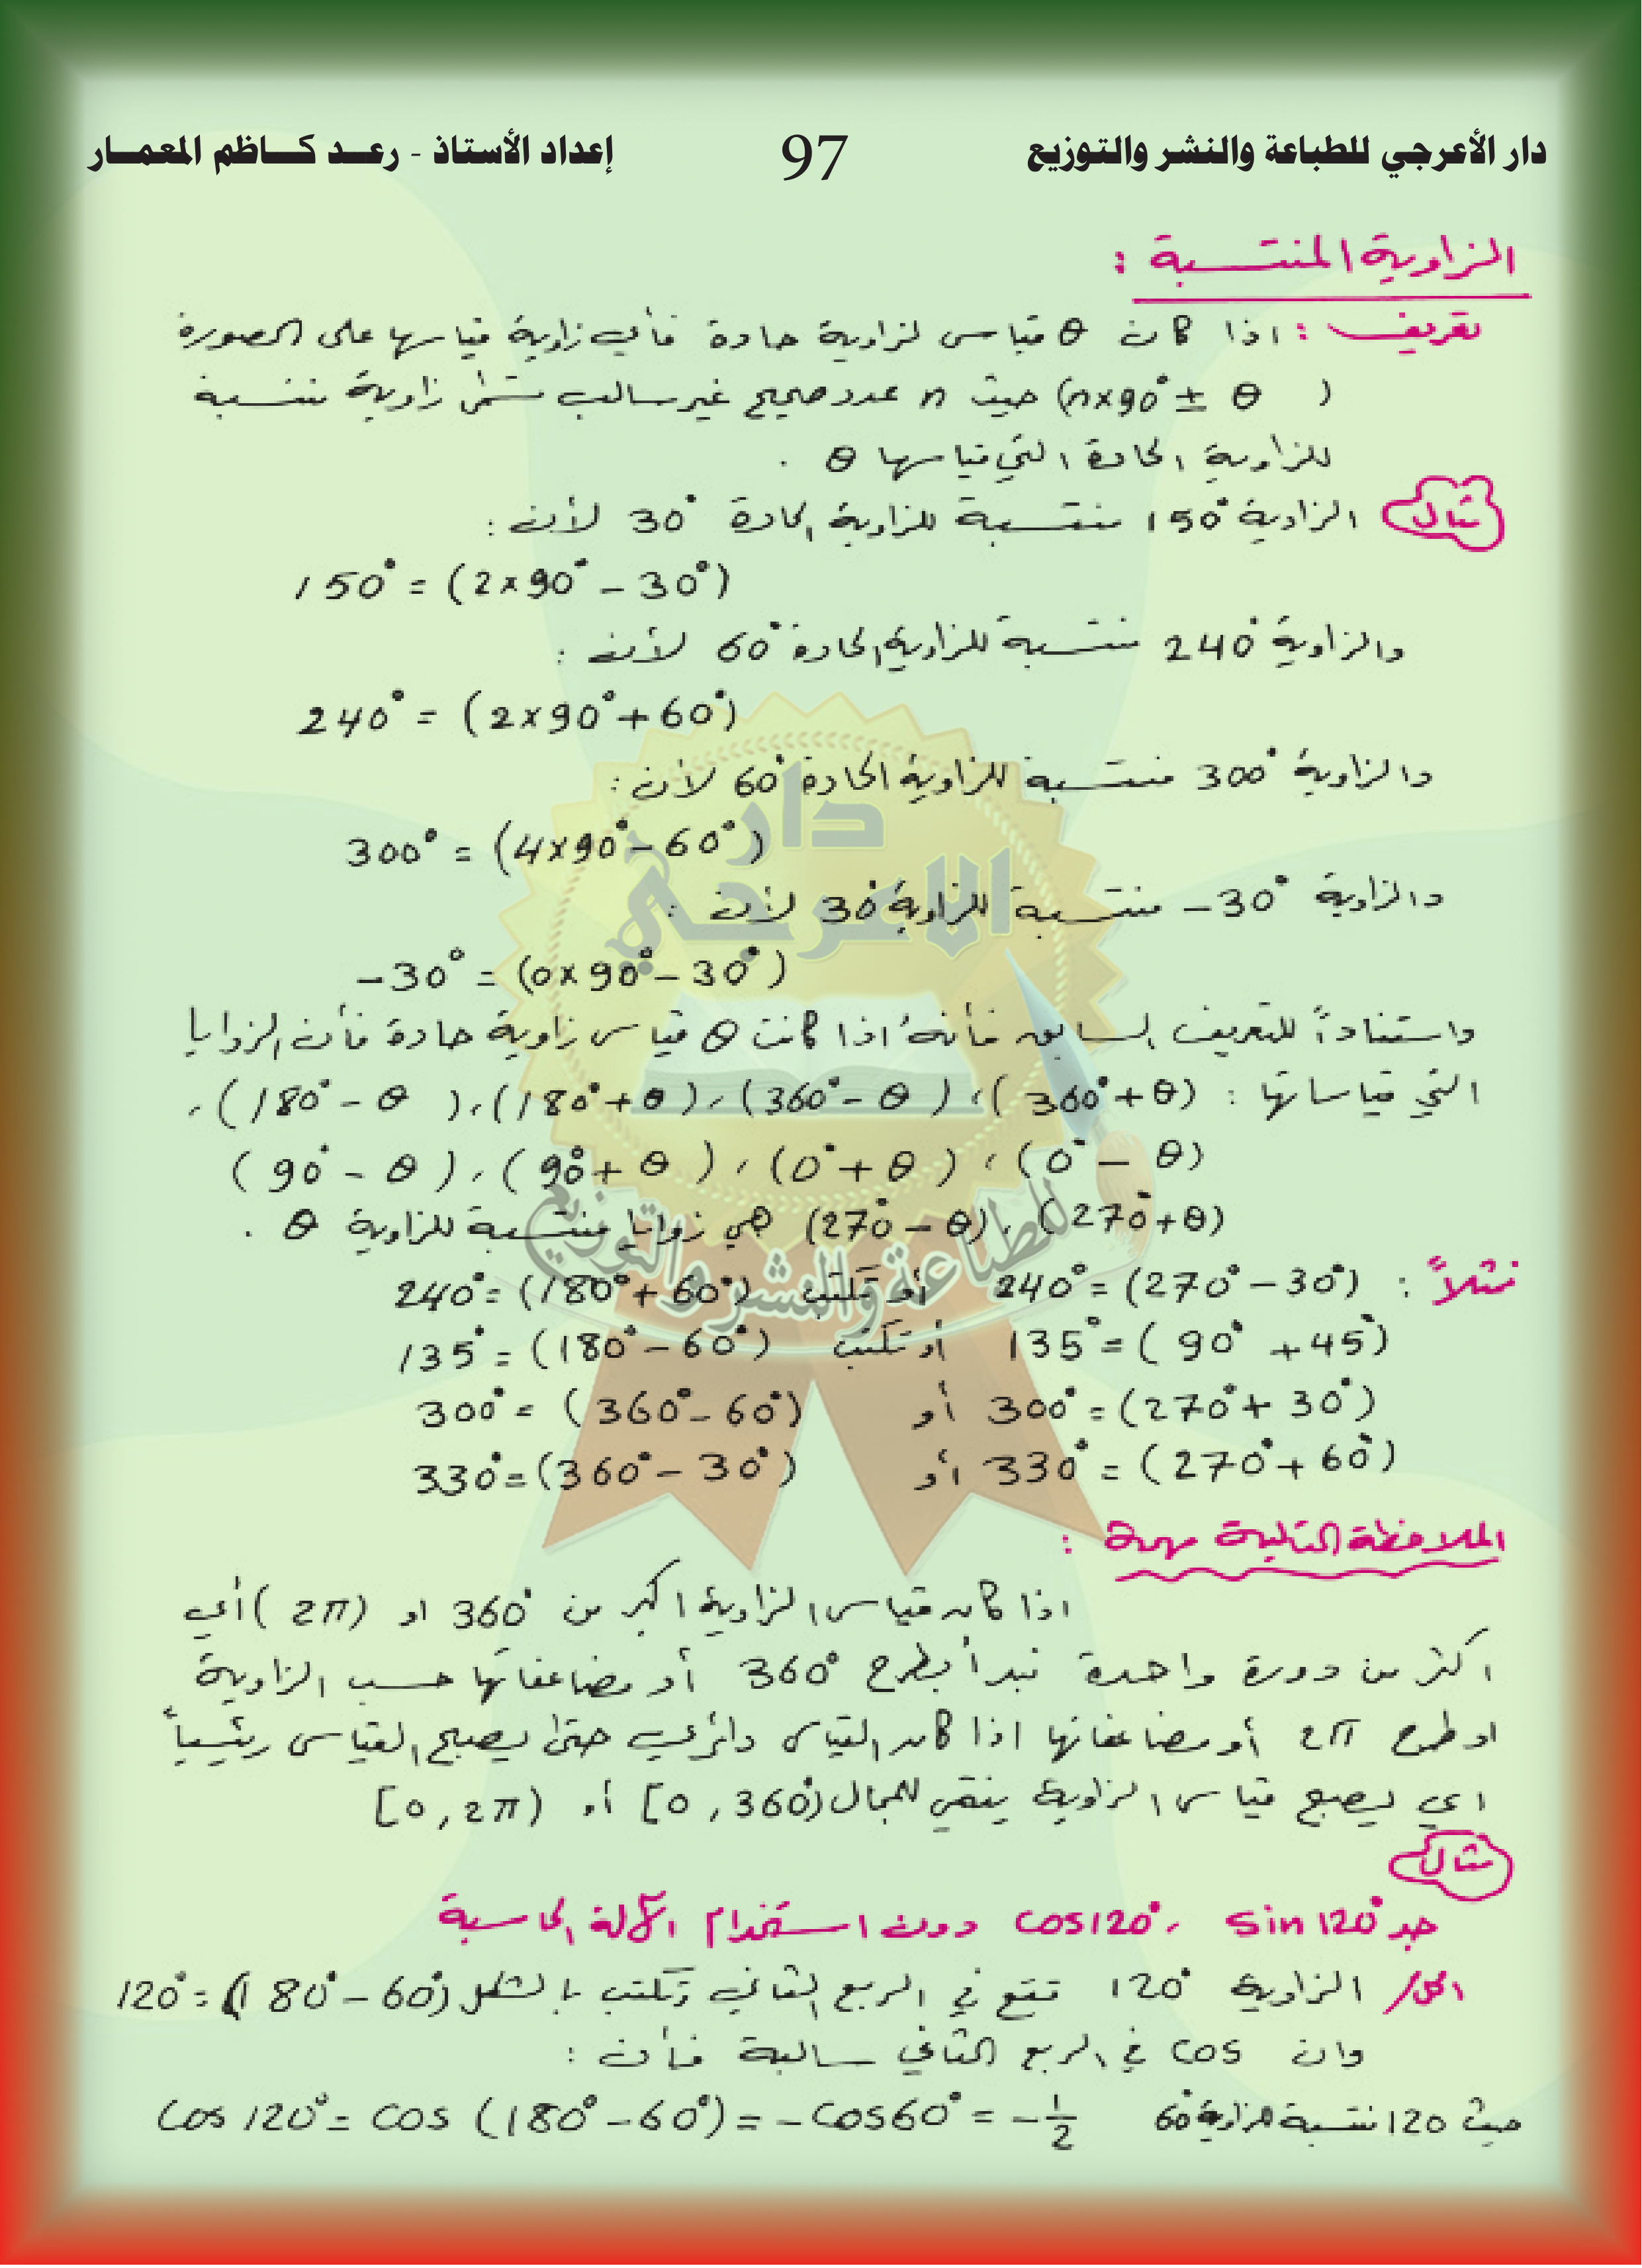 دار الأعرجي للطباعة والنشر والتوزيع 97 إعداد الأستاذ - رعد كاظم المعمار
الزاوية المنتسبة :
تعريف : اذا كان θ قياس لزاوية حادة فأي زاوية قياسها على الصورة
(n×90° ± θ) حيث n عدد صحيح غير سالب تسمى زاوية منتسبة
للزاوية الحادة التي قياسها θ .
مثال الزاوية 150° منتسبة للزاوية الحادة 30° لأن :
150° = (2×90° – 30°)
والزاوية 240° منتسبة للزاوية الحادة 60° لأن :
240° = (2×90° + 60°)
والزاوية 300° منتسبة للزاوية الحادة 60° لأن :
300° = (4×90° – 60°)
والزاوية –30° منتسبة للزاوية 30° لأن :
–30° = (0×90° – 30°)
واستناداً للتعريف السابق فأنهُ اذا كانت θ قياس زاوية حادة فأن الزوايا
التي قياساتها : (360°+θ) ، (360°–θ) ، (180°+θ) ، (180°–θ) ،
(0°–θ) ، (0°+θ) ، (90°+θ) ، (90°–θ)
(270°+θ) ، (270°–θ) هي زوايا منتسبة للزاوية θ .
مثلاً : 240° = (270° – 30°) أو تكتب 240° = (180° + 60°)
135° = (90° + 45°) أو تكتب 135° = (180° – 60°)
300° = (270° + 30°) أو 300° = (360° – 60°)
330° = (270° + 60°) أو 330° = (360° – 30°)
الملاحظة التالية مهمة :
اذا كان قياس الزاوية اكبر من 360° او (2π) أي
اكثر من دورة واحدة نبدأ بطرح 360° أو مضاعفاتها حسب الزاوية
او طرح 2π أو مضاعفاتها اذا كان القياس دائري حتى يصبح القياس رئيسياً
اي يصبح قياس الزاوية ينتمي للمجال [0 , 360°) أو [0 , 2π)
مثال
جد sin 120° ، cos 120° دون استخدام الآلة الحاسبة
الحل/ الزاوية 120° تقع في الربع الثاني وتكتب بالشكل 120° = (180° – 60°)
وان cos في الربع الثاني سالبة فأن :
حيث 120 منتسبة للزاوية 60° cos 120° = cos (180° – 60°) = – cos 60° = – 1/2
دار
الاعرجي
للطباعة والنشر والتوزيع